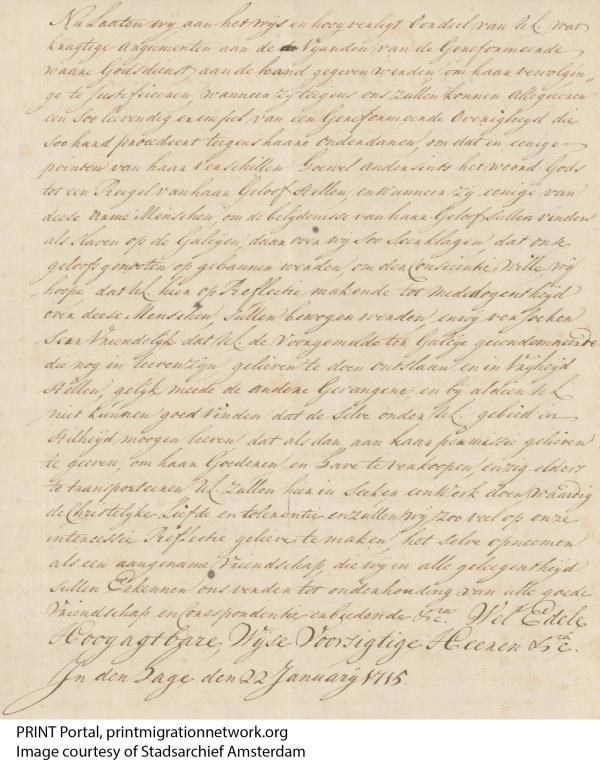 Nu Laaten wij aan het wijs en hoog verligt Oordeel van UL. wat
kragtige argumenten aan de de Vyanden van de Gereformeerde
waare Godsdienst aan de hand gegeven werden om haar vervolgin„
ge te Justificeeren, wanneer zij teegens ons zullen konnen allegueren
een soo leevendig exempel van een Gereformeerde Overigheyd die
soo hard procedeert teegens haare onderdanen, om dat in eenige
pointen van haar Verschillen hoewel andersints het woord Gods
tot een Reegel van haar Geloof Stellen, en Wanneer zij eenige van
deese arme Menschen om de belijdenisse van haar Geloof Sullen vinden
als Slaven op de Galeijen, daar over wij soo Seer klagen, dat onse
geloofs genooten op gebannen werden, om den Conscientie Wille, wij
hoope dat UL hier op Reflectie makende tot mededogentheijd
over deese Menschen Sullen bewogen werden en wij versoeken
Seer Vriendelijk dat UL. de Voorgemelde ten Galeije gecondemneerde
die nog in leeven zijn, gelieven te doen ontslaan en in Vrijheijd
Stellen, gelijk meede de andere Gevangene, en bij aldien UL
niet kunnen goed vinden dat de Selve onder UL. gebied in
Stilheijd moogen leeven dat als dan aan haar permissie gelieven
te geeven, om haar Goederen en Have te verkoopen, en zig elders
te transporteeren UL. Zullen hier in Seeker een Werk doen waardig
de Christelijke Liefde en tolerentie en zullen wij, zoo veel op onse
intercessie Reflectie gelieve te maken, het selve opneemen
als een aangename Vriendschap, die wij in alle geleegentheijd
sullen Erkennen ons vorder tot onderhouding van alle goede
Vriendschap en Correspondentie Wel Edele
Hoog agtbare, Wijse Voorsigtige Heeren &c.
In den Hage den 22 January 1715.
PRINT Portal, printmigrationnetwork.org
Image courtesy of Stadsarchief Amsterdam